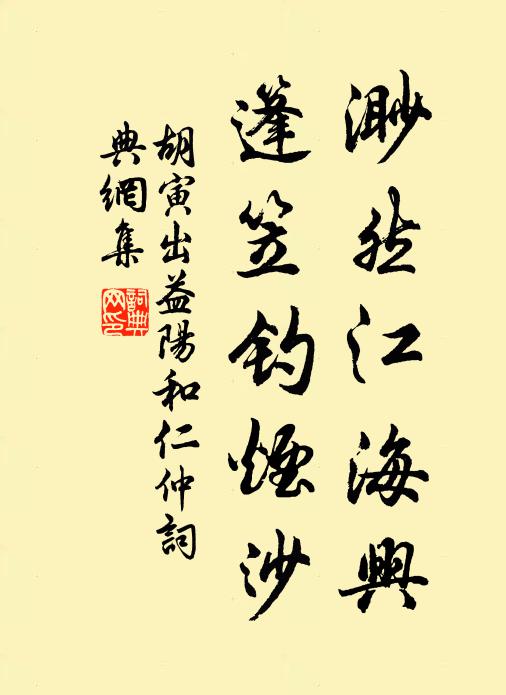 渺然江海興
篷笠釣煙沙
胡寅出益陽和仁仲詞
典網集
詞典
网印